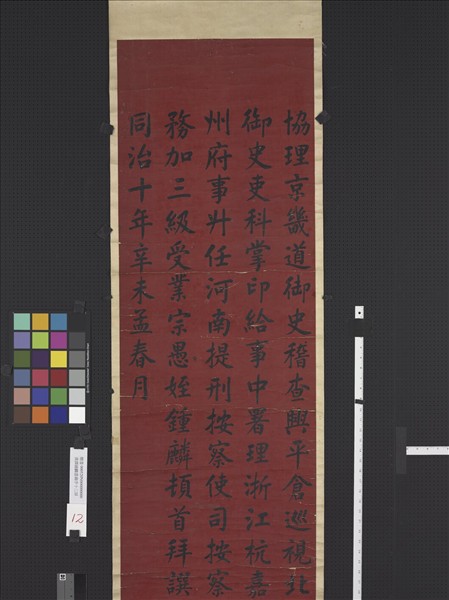 協理京畿道御史稽查興平倉巡視北
御史吏科掌印給事中署理浙江杭嘉
州府事升任河南提刑按察使司按察
務加三級受業宗愚姪鍾麟頓首拜譔
同治十年辛未孟春月
12